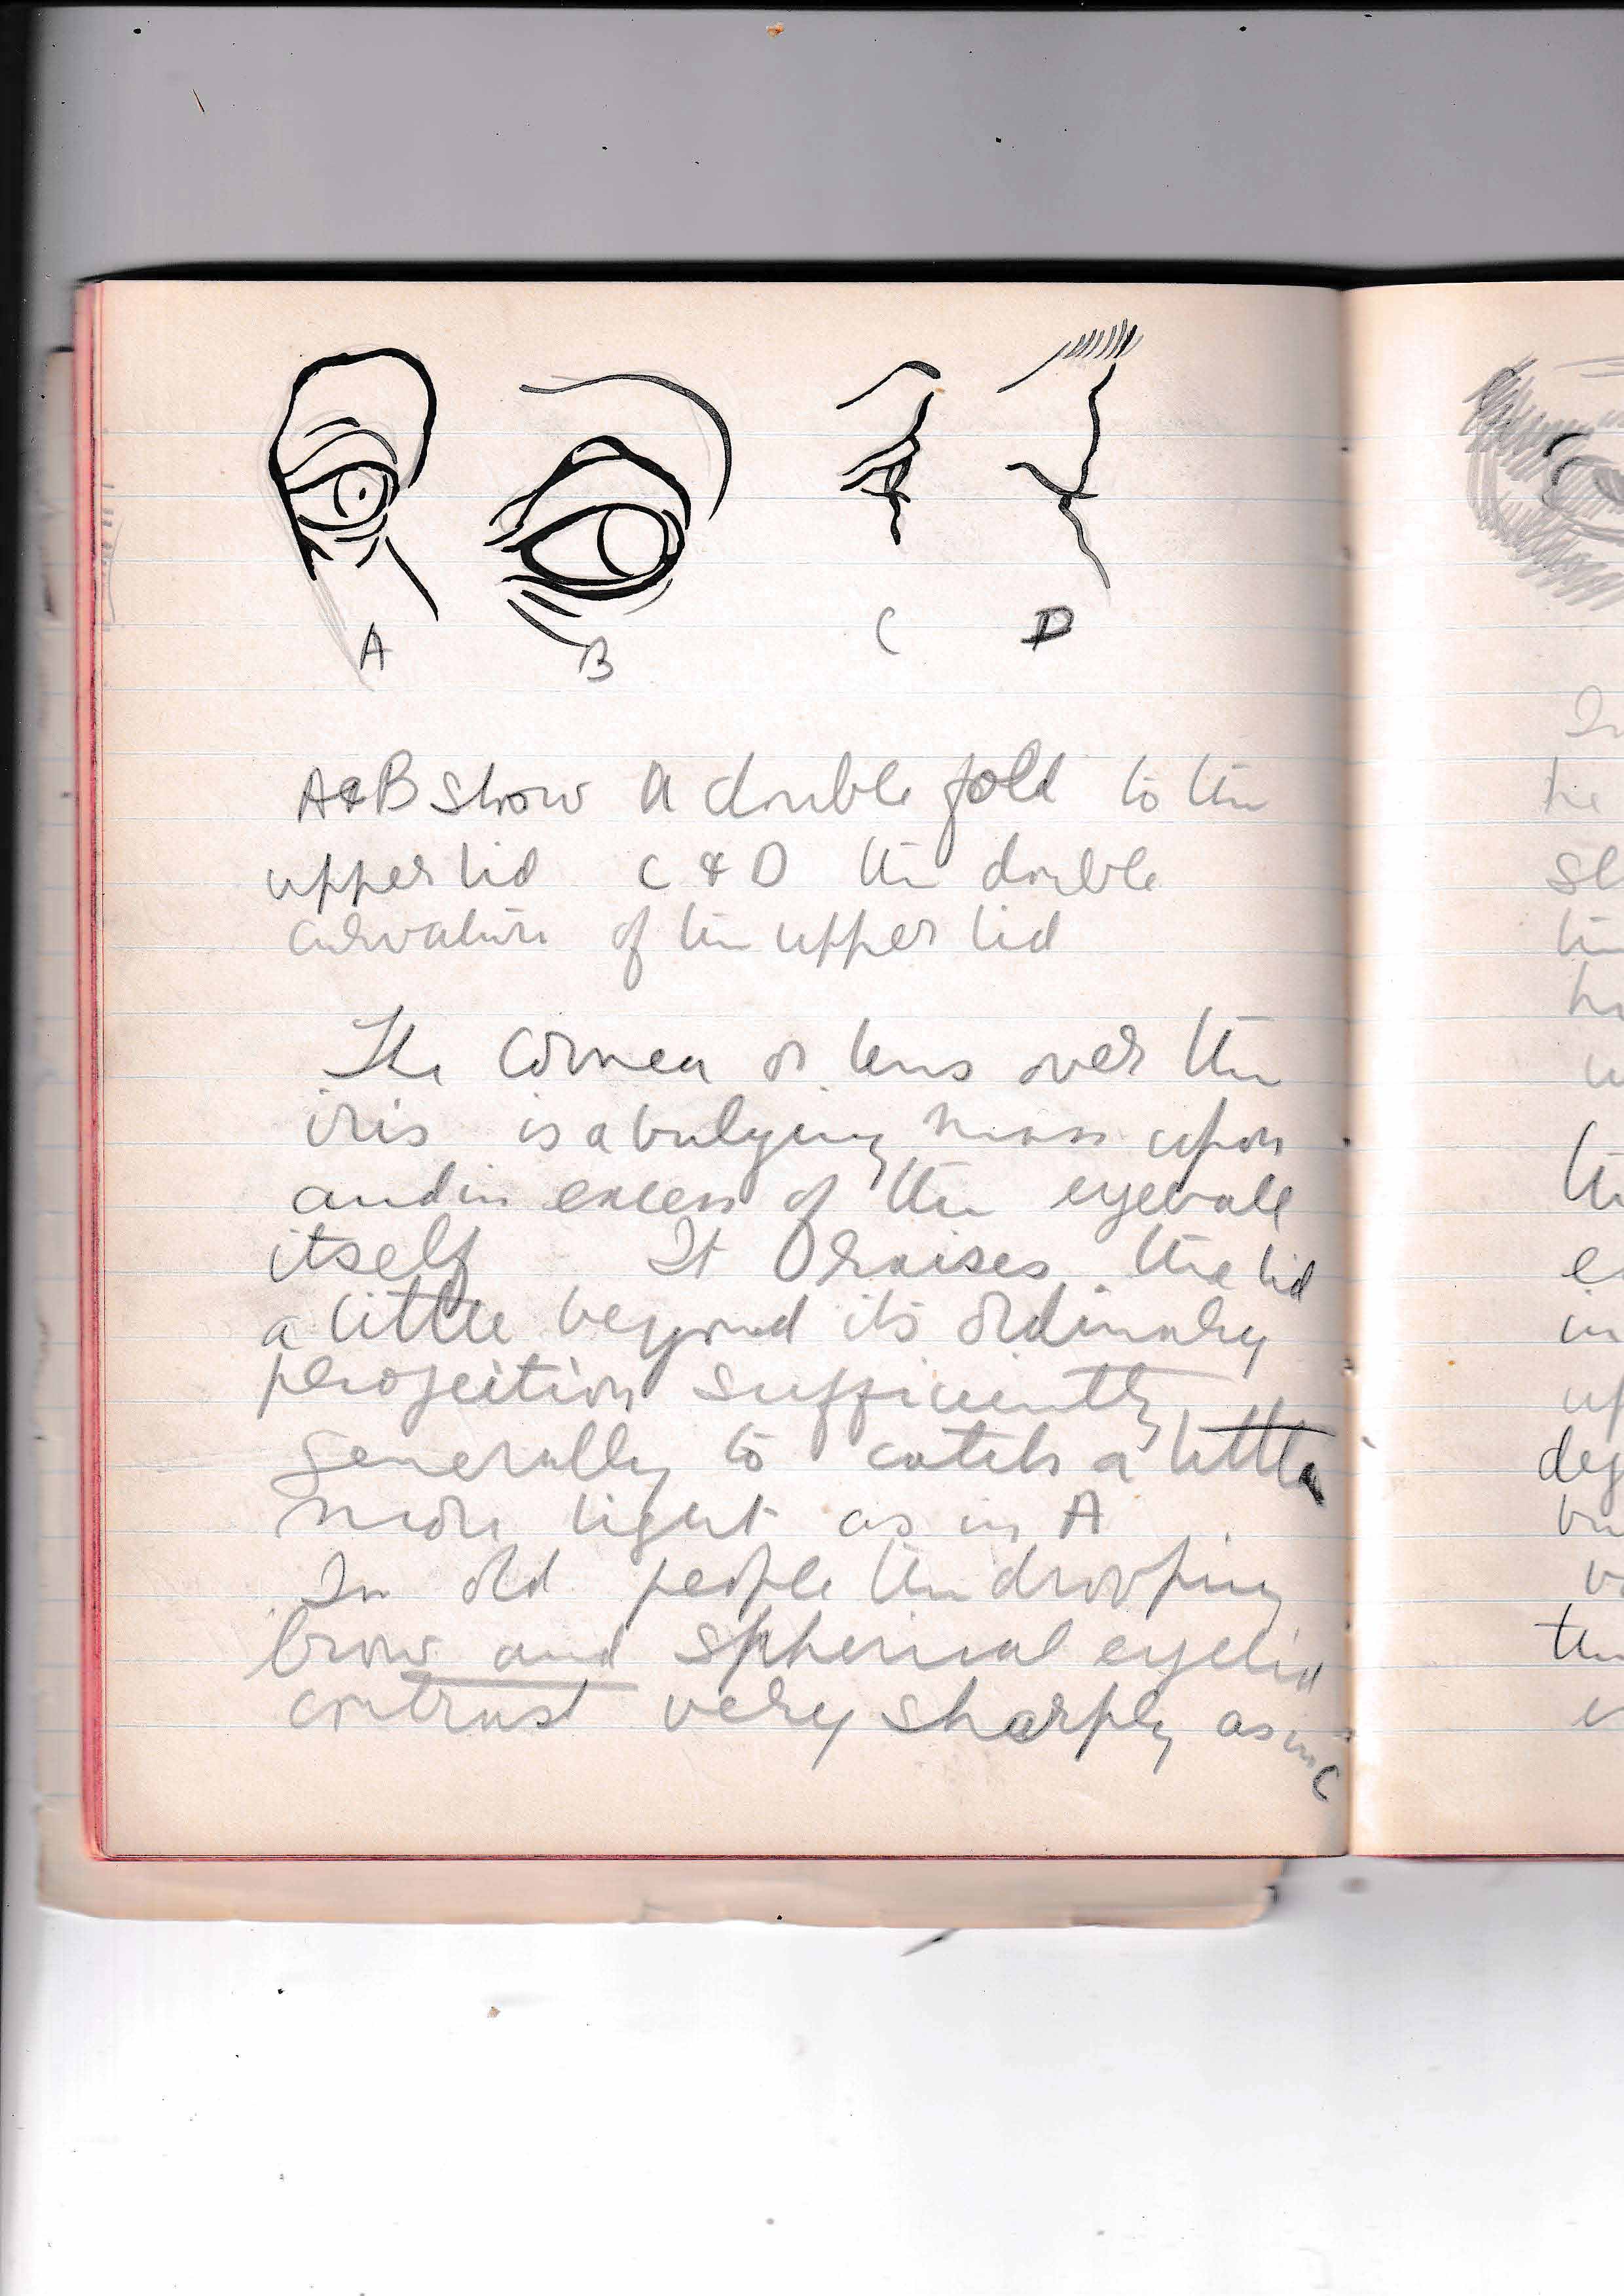 A B C D
A & B show a double fold to the
upper lid C & D the double
curvature of the upper lid
The cornea or lens over the
iris is a bulging mass upon
and in excess of the eyeball
itself It raises the lid
a little beyond its ordinary
perojection sufficiently
generally to catch a little
more light as in A
In old people the drooping
brow and spherical eyelid
contrast very sharply as in
C